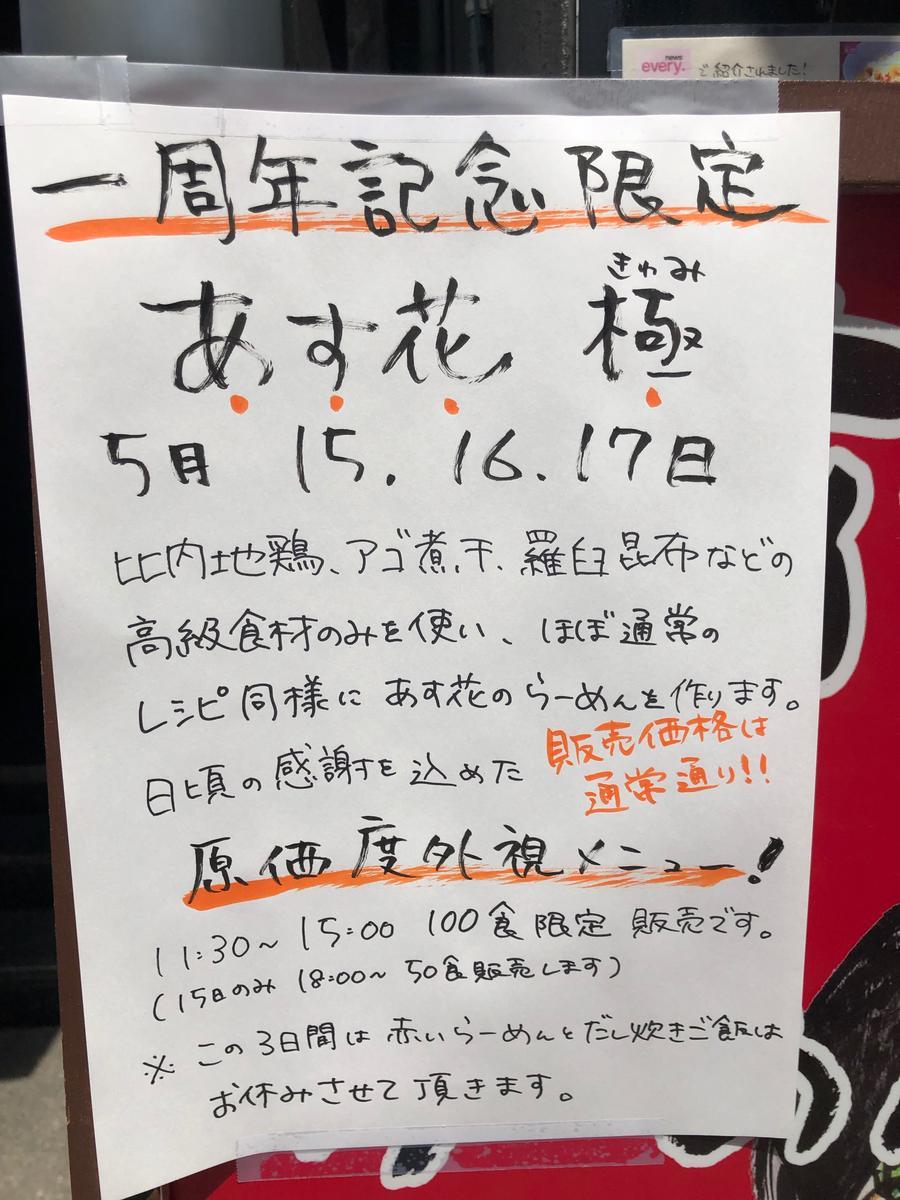 news
every.
で紹介されました!
一周年記念限定
きわみ
あす花 極
5月 15.16.17日
比内地鶏、アゴ煮干、羅臼昆布などの
高級食材のみを使い、ほぼ通常の
レシピ同様に あす花のらーめんを作ります。
日頃の感謝を込めた
販売価格は
通常通り!!
原価度外視メニュー!
11:30~15:00 100食限定 販売です。
(15日のみ 18:00~ 50食販売します)
※ この3日間は 赤いらーめんとだし炊きご飯は
お休みさせて頂きます。